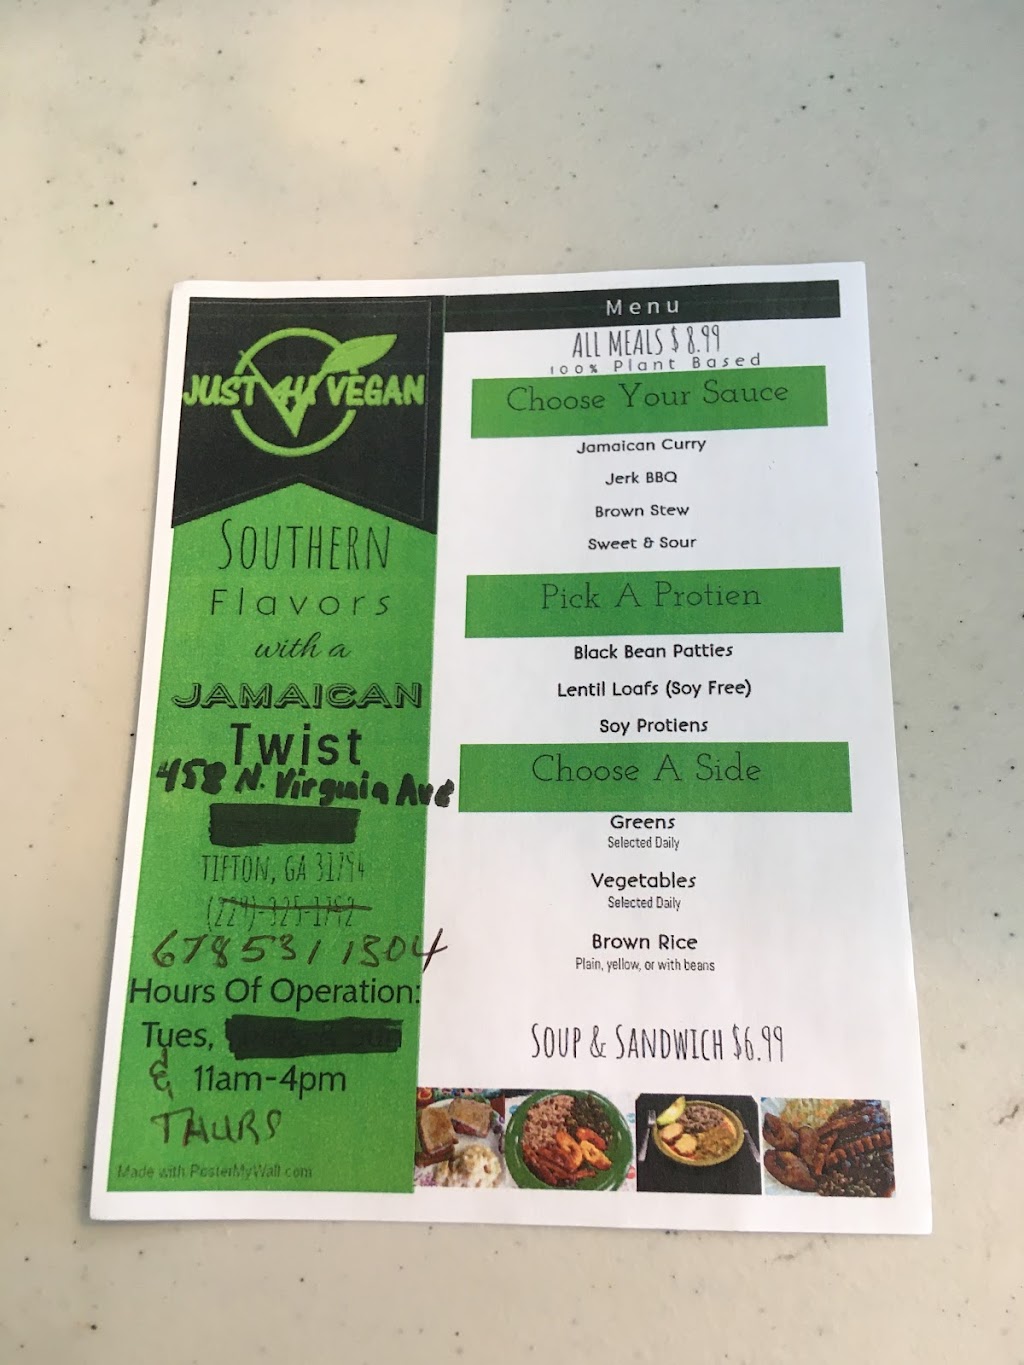 JUST 4U VEGAN
SOUTHERN
Flavors
with a
JAMAICAN
Twist
458 N. Virginia Ave
TIFTON, GA 31794
(229)-325-1792
678 531 1304
Hours Of Operation:
Tues,
& 11am-4pm
THURS
Made with PosterMyWall.com
Menu
ALL MEALS $ 8.99
100% Plant Based
Choose Your Sauce
Jamaican Curry
Jerk BBQ
Brown Stew
Sweet & Sour
Pick A Protien
Black Bean Patties
Lentil Loafs (Soy Free)
Soy Protiens
Choose A Side
Greens
Selected Daily
Vegetables
Selected Daily
Brown Rice
Plain, yellow, or with beans
SOUP & SANDWICH $6.99